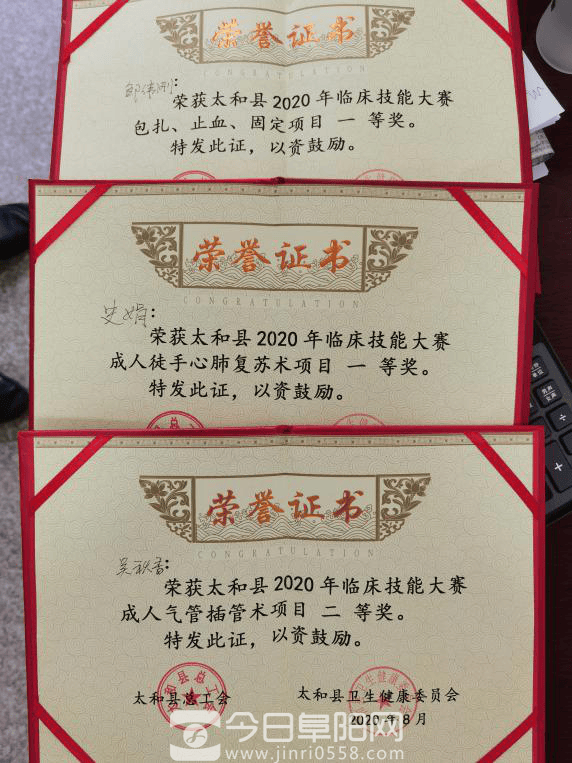 荣誉证书
CONGRATULATION
邹伟刚：
荣获太和县2020年临床技能大赛
包扎、止血、固定项目 一 等奖。
特发此证，以资鼓励。
荣誉证书
CONGRATULATION
史娟：
荣获太和县2020年临床技能大赛
成人徒手心肺复苏术项目 一 等奖。
特发此证，以资鼓励。
县总工
荣誉证书
CONGRATULATION
吴秋香：
荣获太和县2020年临床技能大赛
成人气管插管术项目 二 等奖。
特发此证，以资鼓励。
太和县总工会
太和县总工会
太和县卫生健康委员会
2020年8月
今日阜阳网
www.jinri0558.com